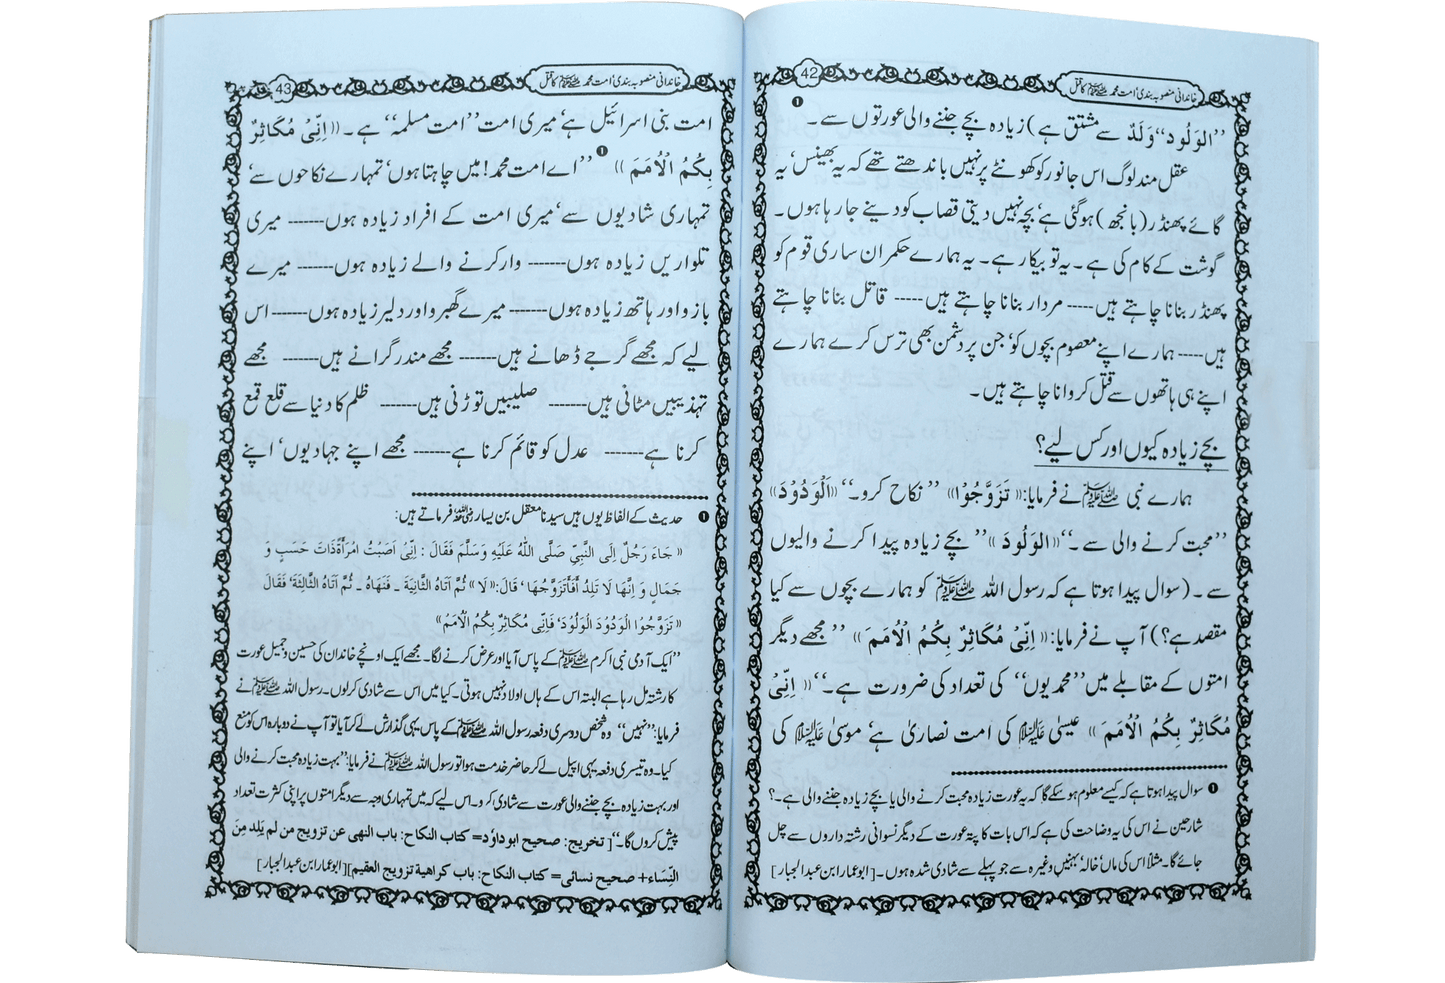 42
خاندانی منصوبہ بندی؛ امت محمد ﷺ کا قتل
’’الوَلُود‘‘ وَلَدٌ سے مشتق ہے) زیادہ بچے جننے والی عورتوں سے۔ ❶
عقل مند لوگ اس جانور کو کھونٹے پر نہیں باندھتے تھے کہ یہ بھینس‘ یہ
گائے پھنڈر (بانجھ) ہوگئی ہے‘ بچہ نہیں دیتی قصاب کو دینے جا رہا ہوں۔
گوشت کے کام کی ہے۔ یہ تو بیکار ہے۔ یہ ہمارے حکمران ساری قوم کو
پھنڈر بنانا چاہتے ہیں---- مردار بنانا چاہتے ہیں---- قاتل بنانا چاہتے
ہیں---- ہمارے اپنے معصوم بچوں کو‘ جن پر دشمن بھی ترس کرے ہمارے
اپنے ہی ہاتھوں سے قتل کروانا چاہتے ہیں۔
بچے زیادہ کیوں اور کس لیے؟
ہمارے نبی ﷺ نے فرمایا: «تَزَوَّجُوْا» ’’نکاح کرو۔‘‘ «اَلْوَدُوْدَ»
’’محبت کرنے والی سے۔‘‘ «الوَلُودَ» ’’بچے زیادہ پیدا کرنے والیوں
سے۔ (سوال پیدا ہوتا ہے کہ رسول اللہ ﷺ کو ہمارے بچوں سے کیا
مقصد ہے؟) آپ نے فرمایا: «اِنِّیْ مُکَاثِرٌ بِکُمُ الْاُمَمَ» ’’مجھے دیگر
امتوں کے مقابلے میں ’’محمدیوں‘‘ کی تعداد کی ضرورت ہے۔‘‘ «اِنِّیْ
مُکَاثِرٌ بِکُمُ الْاُمَمَ» عیسیٰ علیہ السلام کی امت نصاریٰ ہے‘ موسیٰ علیہ السلام کی
❶ سوال پیدا ہوتا ہے کہ کیسے معلوم ہو سکے گا کہ یہ عورت زیادہ محبت کرنے والی یا بچے زیادہ جننے والی ہے۔؟
شارحین نے اس کی یہ وضاحت کی ہے کہ اس بات کا پتہ عورت کے دیگر نسوانی رشتہ داروں سے چل
جائے گا۔ مثلاً اس کی ماں‘ خالہ‘ بہنیں وغیرہ سے جو پہلے سے شادی شدہ ہوں۔ [ابو عمار ابن عبدالجبار]
43
خاندانی منصوبہ بندی؛ امت محمد ﷺ کا قتل
امت بنی اسرائیل ہے‘ میری امت ’’امت مسلمہ‘‘ ہے۔ «اِنِّیْ مُکَاثِرٌ
بِکُمُ الْاُمَمَ» ❶ ’’اے امت محمد! میں چاہتا ہوں‘ تمہارے نکاحوں سے‘
تمہاری شادیوں سے‘ میری امت کے افراد زیادہ ہوں------ میری
تلواریں زیادہ ہوں------ وار کرنے والے زیادہ ہوں------ میرے
بازو اور ہاتھ زیادہ ہوں------ میرے گھبرو اور دلیر زیادہ ہوں------ اس
لیے کہ مجھے گرجے ڈھانے ہیں------ مجھے مندر گرانے ہیں------ مجھے
تہذیبیں مٹانی ہیں------ صلیبیں توڑنی ہیں------ ظلم کا دنیا سے قلع قمع
کرنا ہے------ عدل کو قائم کرنا ہے------ مجھے اپنے جہادیوں‘ اپنے
❶ حدیث کے الفاظ یوں ہیں سیدنا معقل بن یسار رضی اللہ عنہ فرماتے ہیں:
«جَاءَ رَجُلٌ اِلَی النَّبِیِّ صَلَّی اللّٰہُ عَلَیْہِ وَسَلَّمَ فَقَالَ : اِنِّیْ اَصَبْتُ امْرَأَۃً ذَاتَ حَسَبٍ وَ
جَمَالٍ وَ اِنَّھَا لَا تَلِدُ أَفَأَتَزَوَّجُھَا‘ قَالَ: «لَا» ثُمَّ اَتَاہُ الثَّانِیَۃَ ۔ فَنَھَاہُ ۔ ثُمَّ اَتَاہُ الثَّالِثَۃَ‘ فَقَالَ
«تَزَوَّجُوْا الْوَدُوْدَ الْوَلُوْدَ‘ فَاِنِّی مُکَاثِرٌ بِکُمُ الْاُمَمَ»
’’ایک آدمی نبی اکرم ﷺ کے پاس آیا اور عرض کرنے لگا۔ مجھے ایک اونچے خاندان کی حسین وجمیل عورت
کا رشتہ مل رہا ہے البتہ اس کے ہاں اولاد نہیں ہوتی۔ کیا میں اس سے شادی کرلوں۔ رسول اللہ ﷺ نے
فرمایا: ’’نہیں‘‘ وہ شخص دوسری دفعہ رسول اللہ ﷺ کے پاس یہی گذارش لے کر آیا تو آپ نے دوبارہ اس کو منع
کیا۔ وہ تیسری دفعہ یہی اپیل لے کر حاضر خدمت ہوا تو رسول اللہ ﷺ نے فرمایا: ’’بہت زیادہ محبت کرنے والی
اور بہت زیادہ بچے جننے والی عورت سے شادی کرو۔ اس لیے کہ میں تمہاری وجہ سے دیگر امتوں پر اپنی کثرت تعداد
پیش کروں گا۔‘‘ [تخریج: صحیح ابوداؤد= کتاب النکاح: باب النھی عن تزویج من لم یَلِد مِنَ
النِّسَاء+ صحیح نسائی= کتاب النکاح: باب کراھیۃ تزویج العقیم] [ابو عمار ابن عبدالجبار]